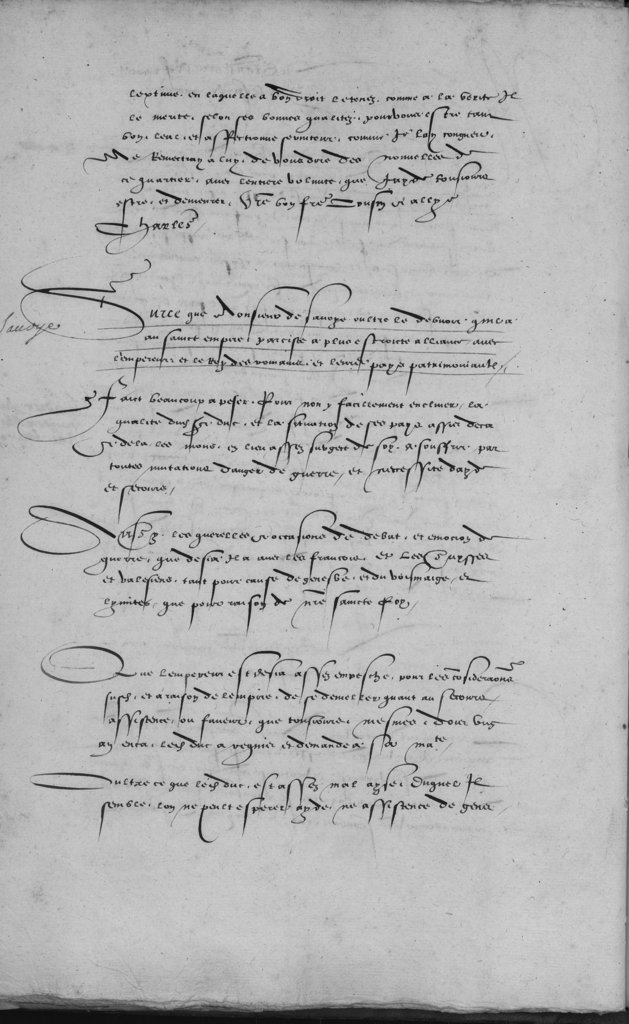 lextime, en laquelle a bon droit le tenez, comme a la verite Il
le merite, selon ses bonnes qualitez, pour vous estre tant
bon, leal, et affectionne serviteur, comme Je lay congneu,
Me Remectray a luy, de vous dire des nouvelles de
ce quartier, avec lentiere volunte, que Jay de tousiours
estre, et demeurer, Vre bon frere Cousin et allye
Charles
Savoye
Surce que Monsieur de Savoye oultre le debuoir qui la
au sainct empire, par ciste a plus estroicte alliance avec
lempereur et le Roy des romains, et leurs pays patrimoniaulx,
Faict beaucoup a peser, Pour non y facillement encliner, la
qualite dudict Sr duc, et la situation de ses pays assis deca
et dela les mons, en lieu assez subgect de soy, a souffrir par
toutes mutations danger de guerre, et necessite dayde
et secours,
les querelles et occasions de debat, et emocion de
guerre, que desia Il a avec les francois, et Les Suysses
et valesiens, tant pour cause de genesve, et du voisinaige, et
lymites, que pour raison de nre saincte foy,
Que lempereur est desia assez empesche, pour les consideracions
susd, et a raison de lempire, de se demesler quant au secours
assistence, ou faveur, que tousiours, mesmes, dois ung
an enca, ledt duc a requis et demande a sa mate
Oultre ce que ledt duc, est assez mal ayse, duquel Il
semble, lon ne peult esperer ayde, ne assistence de gens